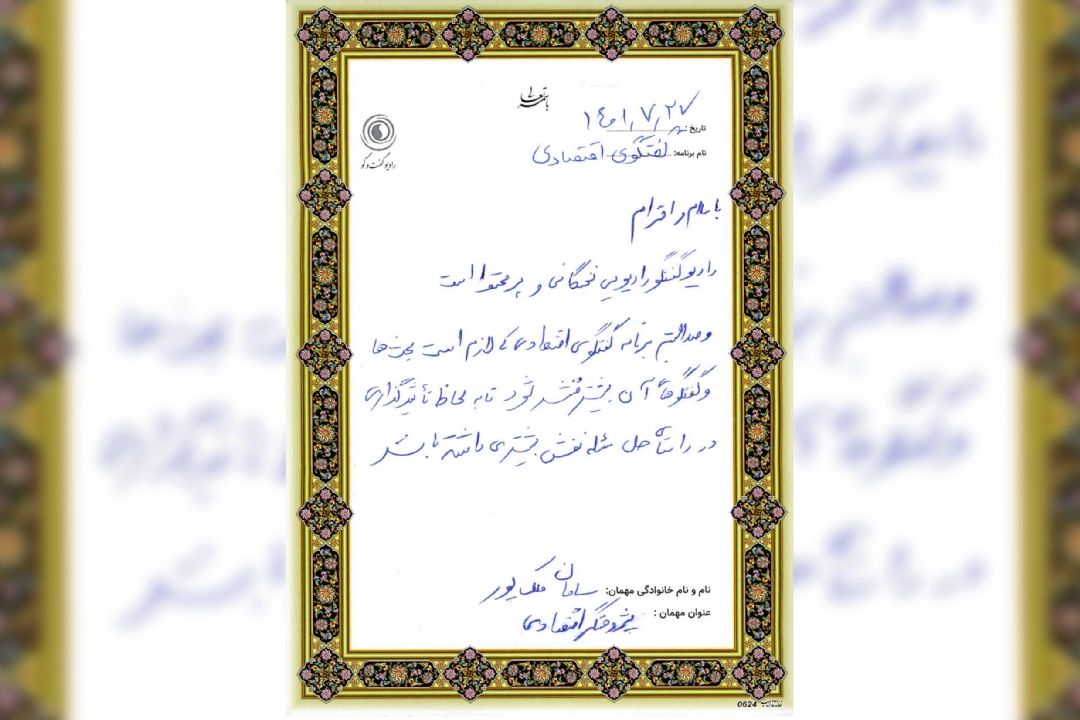 باسمه تعالی
تاریخ: ۱۴۰۱٫۷٫۲۷
رادیو گفت و گو
نام برنامه: گفتگوی اقتصادی
با سلام و احترام
رادیو گفتگو رادیویی نخبگانی و پر محتوا است
و صد البته برنامه گفتگوی اقتصادی که لازم است بحث‌ها
و گفتگوهای آن بیشتر منتشر شود تا به لحاظ تأثیرگذاری
در راستای حل مسئله نقش بیشتری داشته باشد
نام و نام خانوادگی مهمان: سامان ملک پور
عنوان مهمان: پژوهشگر اقتصادی
0624